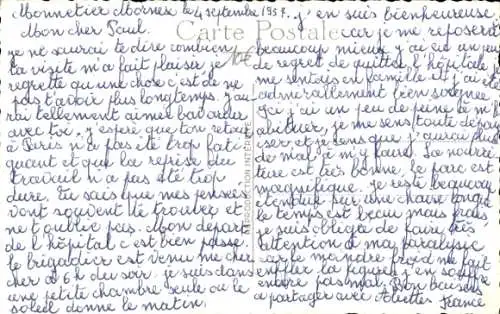 Monnetier Mornex le 4 septembre 1957.
Mon cher Paul.
je ne saurai te dire combien
ta visite m'a fait plaisir, je
regrette qu'une chose c'est de ne
pas t'avoir plus longtemps. j'au
rai tellement aimer bavarder
avec toi, j'espère que ton retour
à Paris n'a pas été trop fati
guant et que la reprise du
travail n'a pas été trop
dure. Tu sais que mes pensées
vont souvent te trouver et
ne t'oublie pas. Mon départ
de l'hôpital c'est bien passé.
le brigadier est venu me cher
cher à 6h du soir. je suis dans
une petite chambre seule ou le
soleil donne le matin.
Carte Postale
10€
REPRODUCTION INTERDITE
j'en suis bienheureuse
car je me reposerai
beaucoup mieux, j'ai eu un peu
de regret de quitter l'hôpital, je
me sentais en famille et j'ai été
admirablement bien soignée.
Ici j'ai un peu de peine à m'h
abituer, je me sens toute dépay
sée, et je sens que j'aurai plus
de mal à m'y faire. La nourri
ture est très bonne, le parc est
magnifique. je reste beaucoup
étendue sur une chaise longue
le temps est beau mais frais,
je suis obligée de faire très
attention à ma paralysie
car le moindre froid me fait
enffler la figure, j'en souffre
encore pas mal. Bon baisers
a partager avec Aliette. France